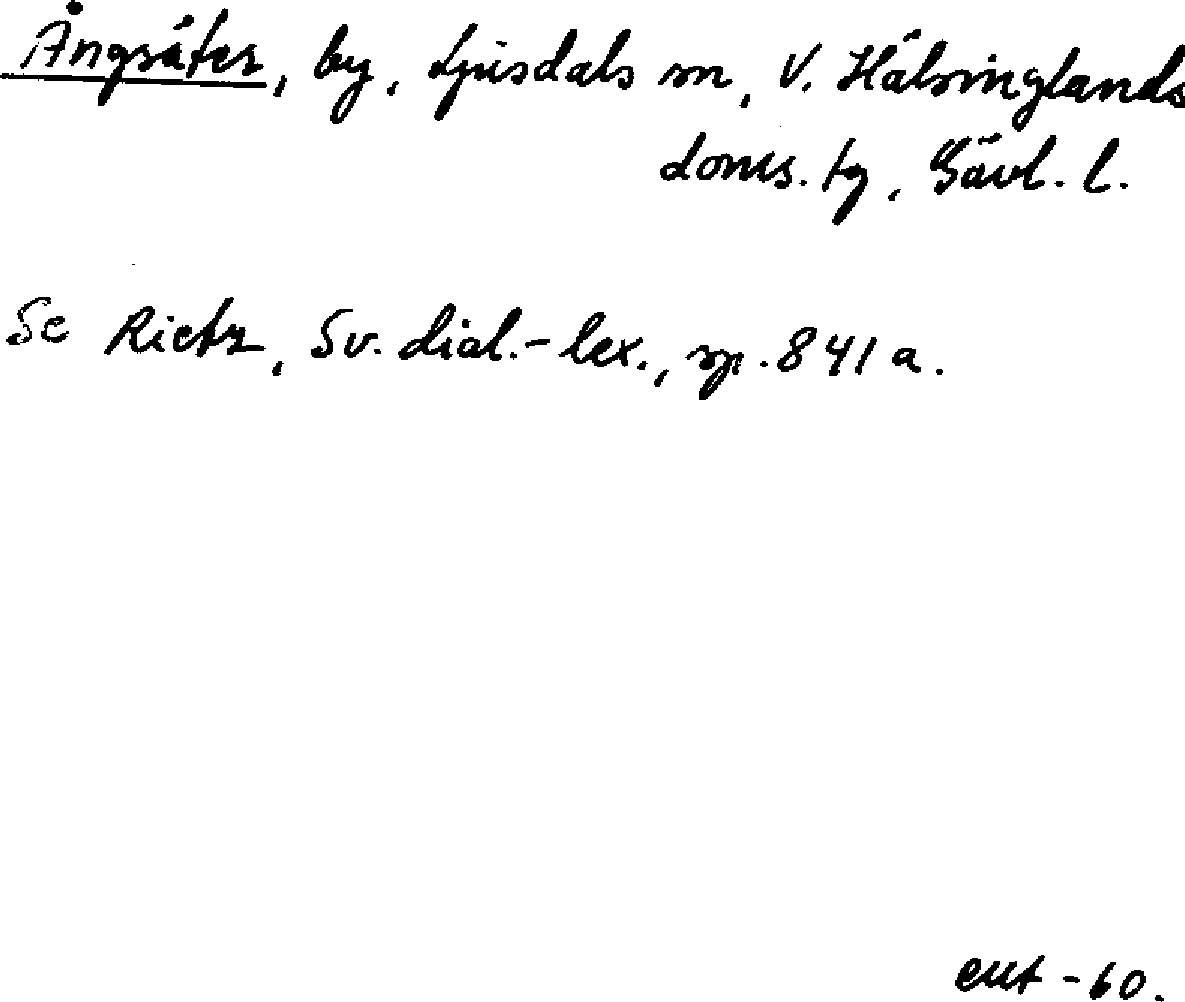 Ångsäter, by, Ljusdals sn, V. Hälsinglands
doms. tg, Gävl. l.
Se Rietz, Sv. dial.-lex., sp. 841 a.
eut -60.